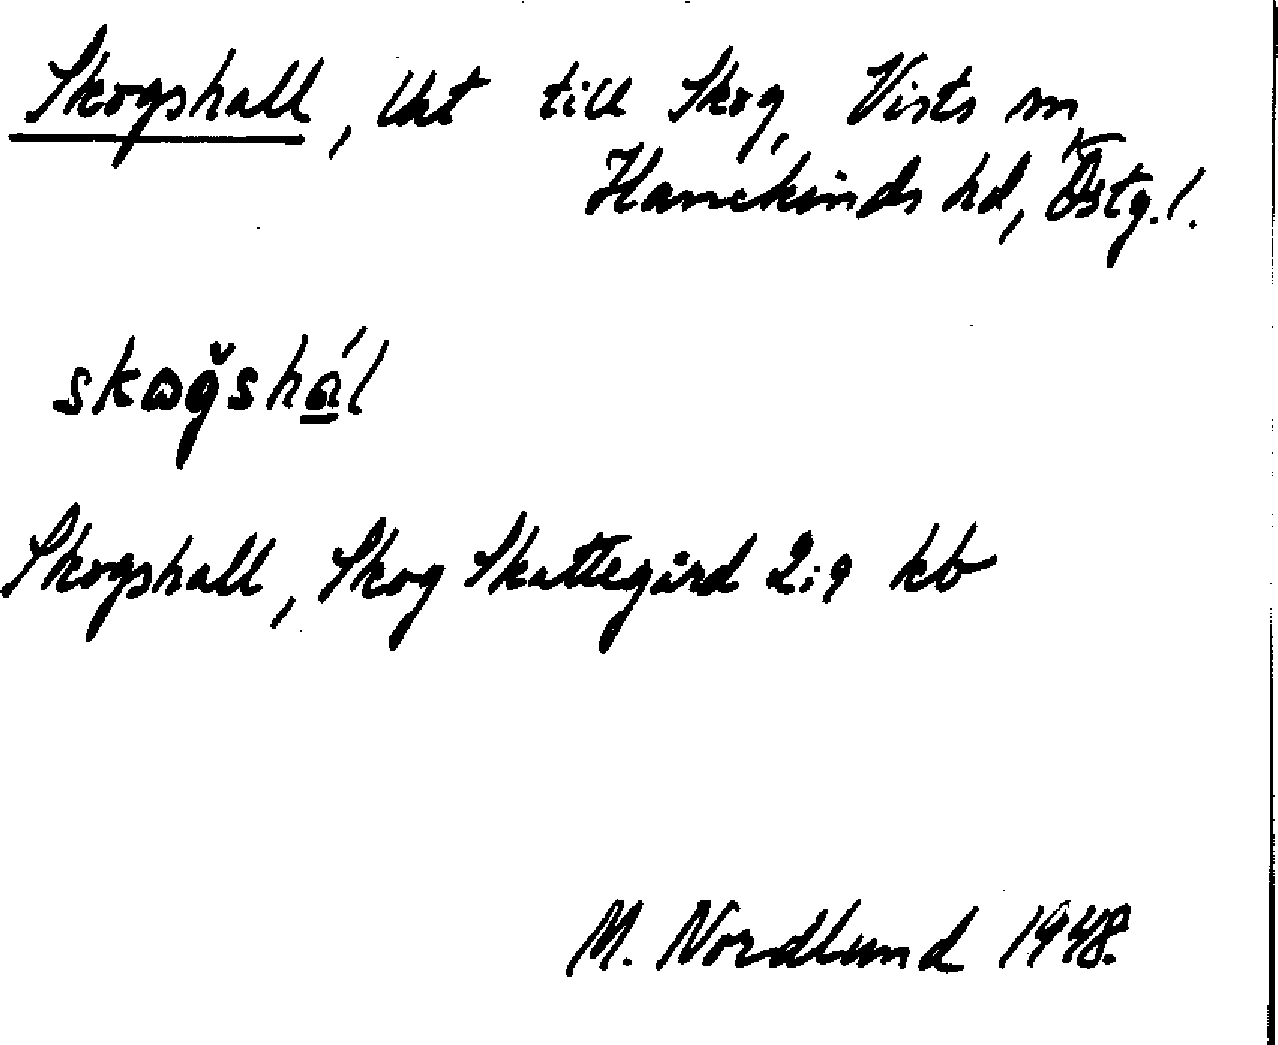 Skogshall, lht till Skog, Vists sn,
Hanekinds hd, Östg. l.
skoğshál
Skogshall, Skog Skattegård 2:9 kb
M. Nordlund 1948.